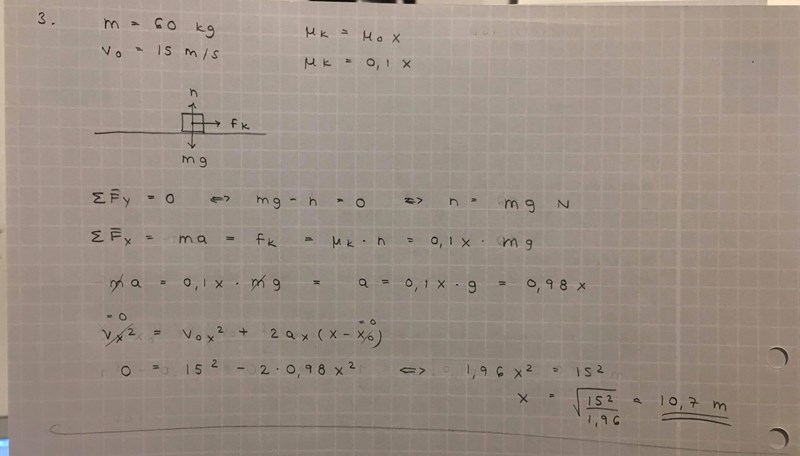 3.
m = 60 kg
μk = μ0 x
v0 = 15 m/s
μk = 0,1 x
n
fk
mg
ΣF̄y = 0 <=> mg - n = 0 <=> n = mg N
ΣF̄x = ma = fk = μk · n = 0,1 x · mg
ma = 0,1 x · mg = a = 0,1 x · g = 0,98 x
= 0
= 0
vx² = v0x² + 2ax (x - x0)
0 = 15² - 2 · 0,98 x² <=> 1,96 x² = 15²
x = √(15²/1,96) = 10,7 m